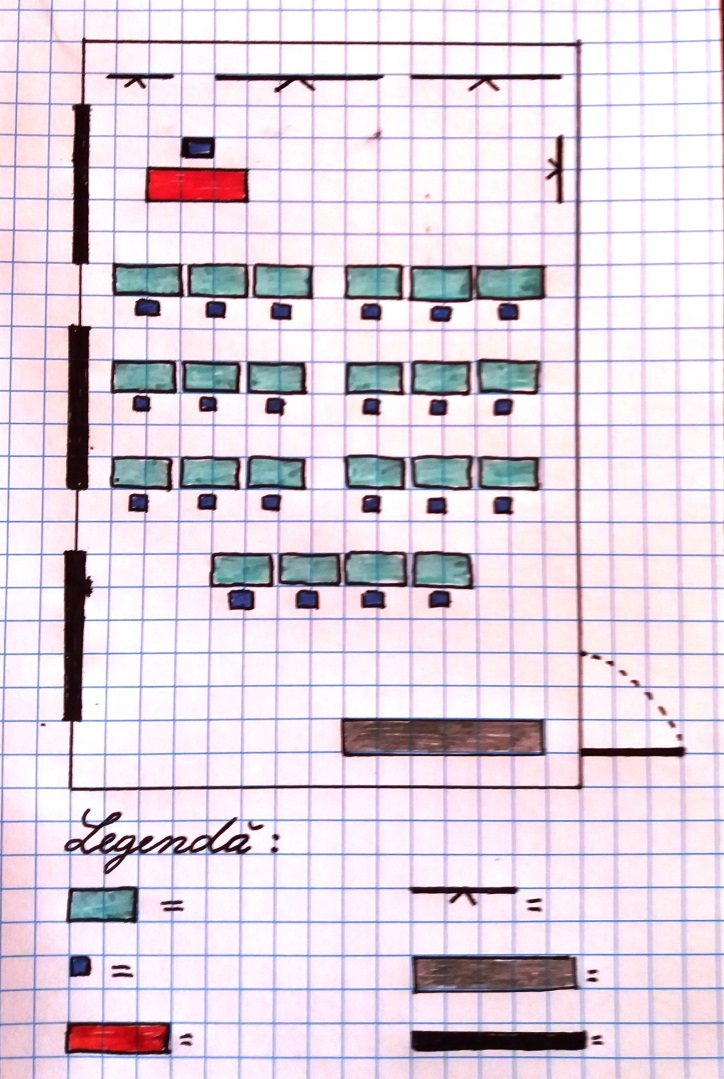 Legendă :
=
=
=
=
=
=